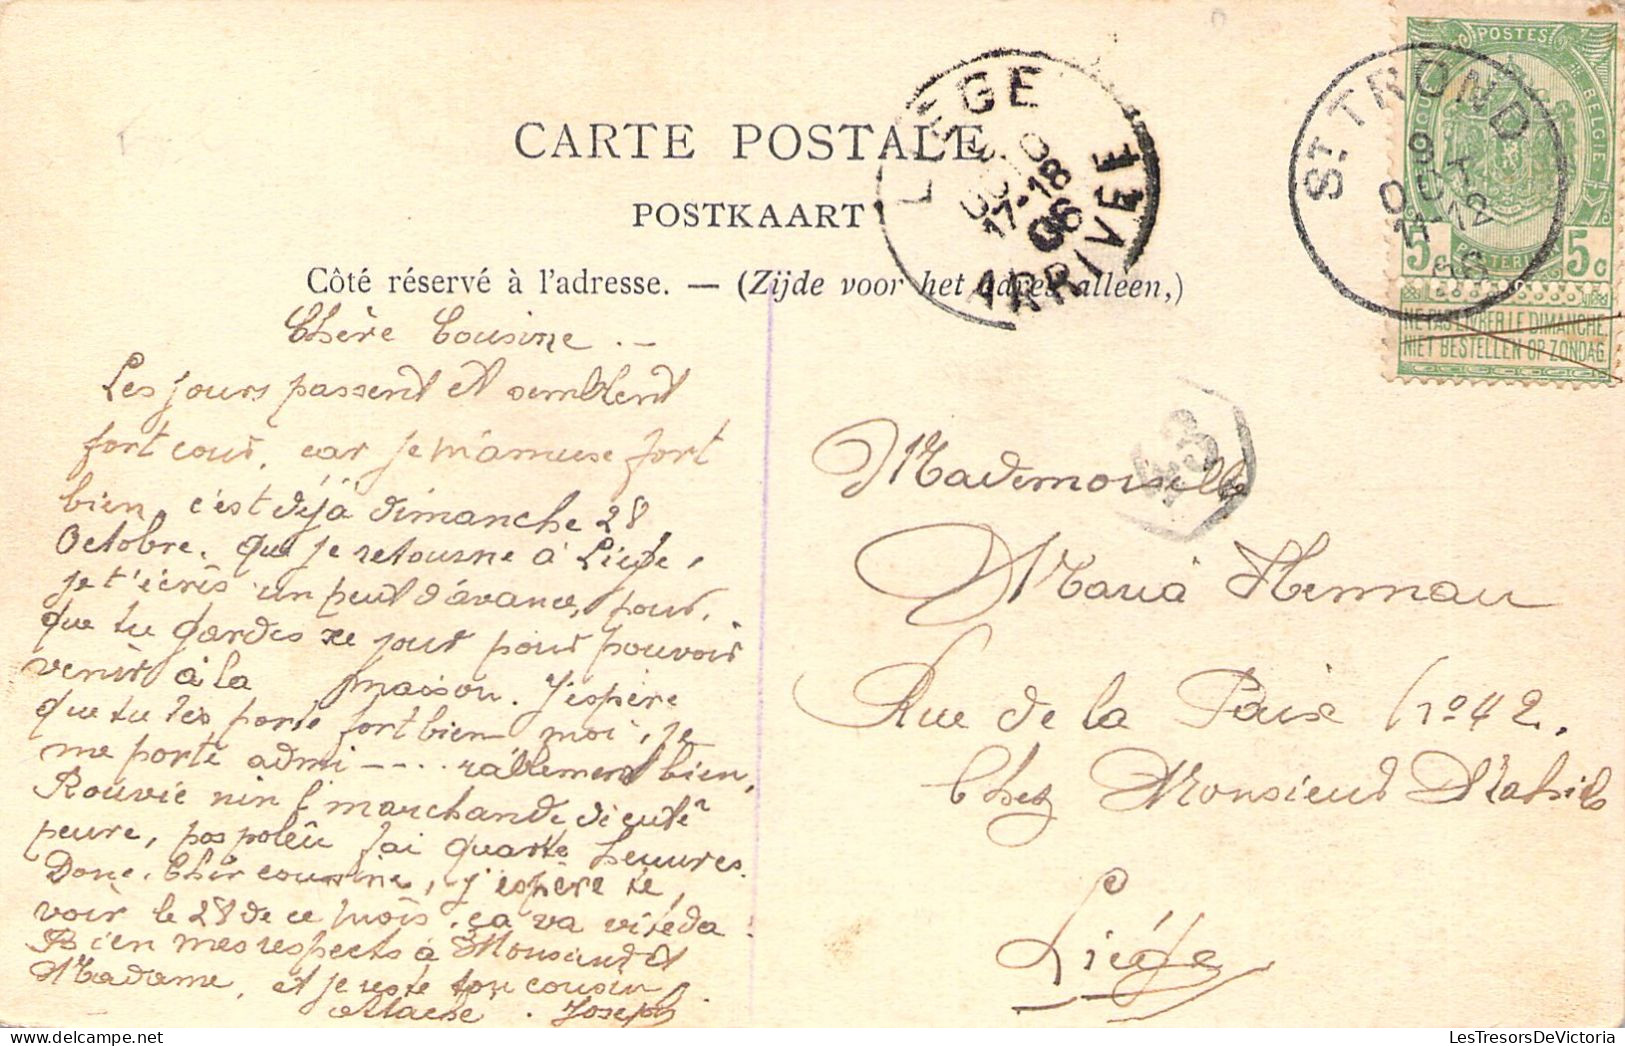 CARTE POSTALE
POSTKAART
Côté réservé à l'adresse. — (Zijde voor het adres alléén,)
LIEGE
OCT 10
17-18
06
ARRIVEE
POSTES
BELGIE
ST TROND
9 OCT
17 12
06
5c 5c
NE PAS LIVRER LE DIMANCHE
NIET BESTELLEN OP ZONDAG
43
Chère Cousine . —
Les jours passent et semblent
fort cour, car je m'amuse fort
bien, c'est déjà dimanche 28
Octobre. que je retourne à Liége,
je t'écris un peut d'avance, pour,
que tu gardes ce jour pour pouvoir
venir à la maison. J'espère
que tu tes porte fort bien moi, je
me porte admi - - . . . rablement bien,
marchande
peure, pas j'ai quarte heuures.
Donc. Chèr cousine, j'espère te
voir le 28 de ce mois. ça va
Bien mes respects à Monsieur et
Madame, et je reste ton cousin
Joseph
Mademoiselle
Maria Hennau
Rue de la Paix no 42.
Chez Monsieur
Liége
LesTresorsDeVictoria